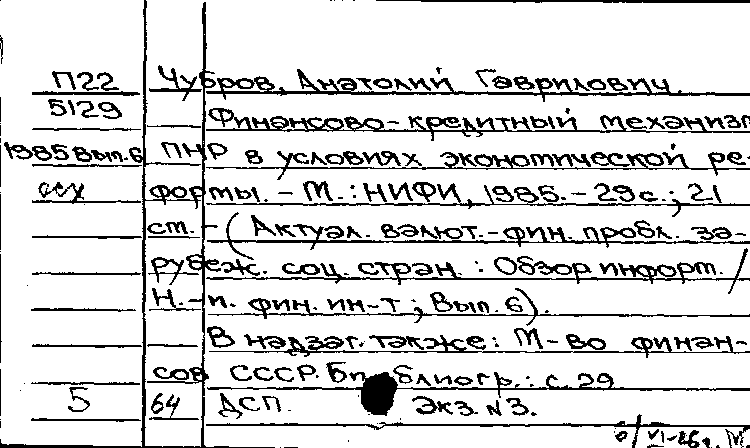 П22 Чубров, Анатолий Гаврилович.
5129 Финансово-кредитный механизм
1985 Вып.6 ПНР в условиях экономической ре-
осх формы. - М.: НИФИ, 1985. - 29 с.; 21
см. - (Актуал. валют.-фин. пробл. за-
рубеж. соц. стран. : Обзор. информ. /
Н.-и. фин. ин-т; Вып. 6).
В надзаг. также: М-во финан-
сов СССР. Библиогр.: с. 29.
5 64 ДСП. Экз. N3.